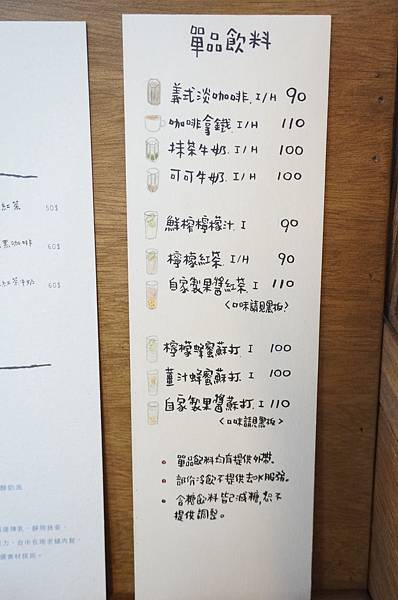 單品飲料
義式淡咖啡. I/H 90
咖啡拿鐵. I/H 110
抹茶牛奶. I/H 100
可可牛奶. I/H 100
鮮榨檸檬汁. I 90
檸檬紅茶. I/H 90
自家製果醬紅茶. I 110
<口味請見黑板>
檸檬蜂蜜蘇打. I 100
薑汁蜂蜜蘇打. I 100
自家製果醬蘇打. I 110
<口味請見黑板>
• 單品飲料均有提供外帶。
• 部份冷飲不提供去冰服務。
• 含糖飲料皆已減糖,恕不
提供調整。
紅茶 50$
黑咖啡 60$
紅茶牛奶 60$